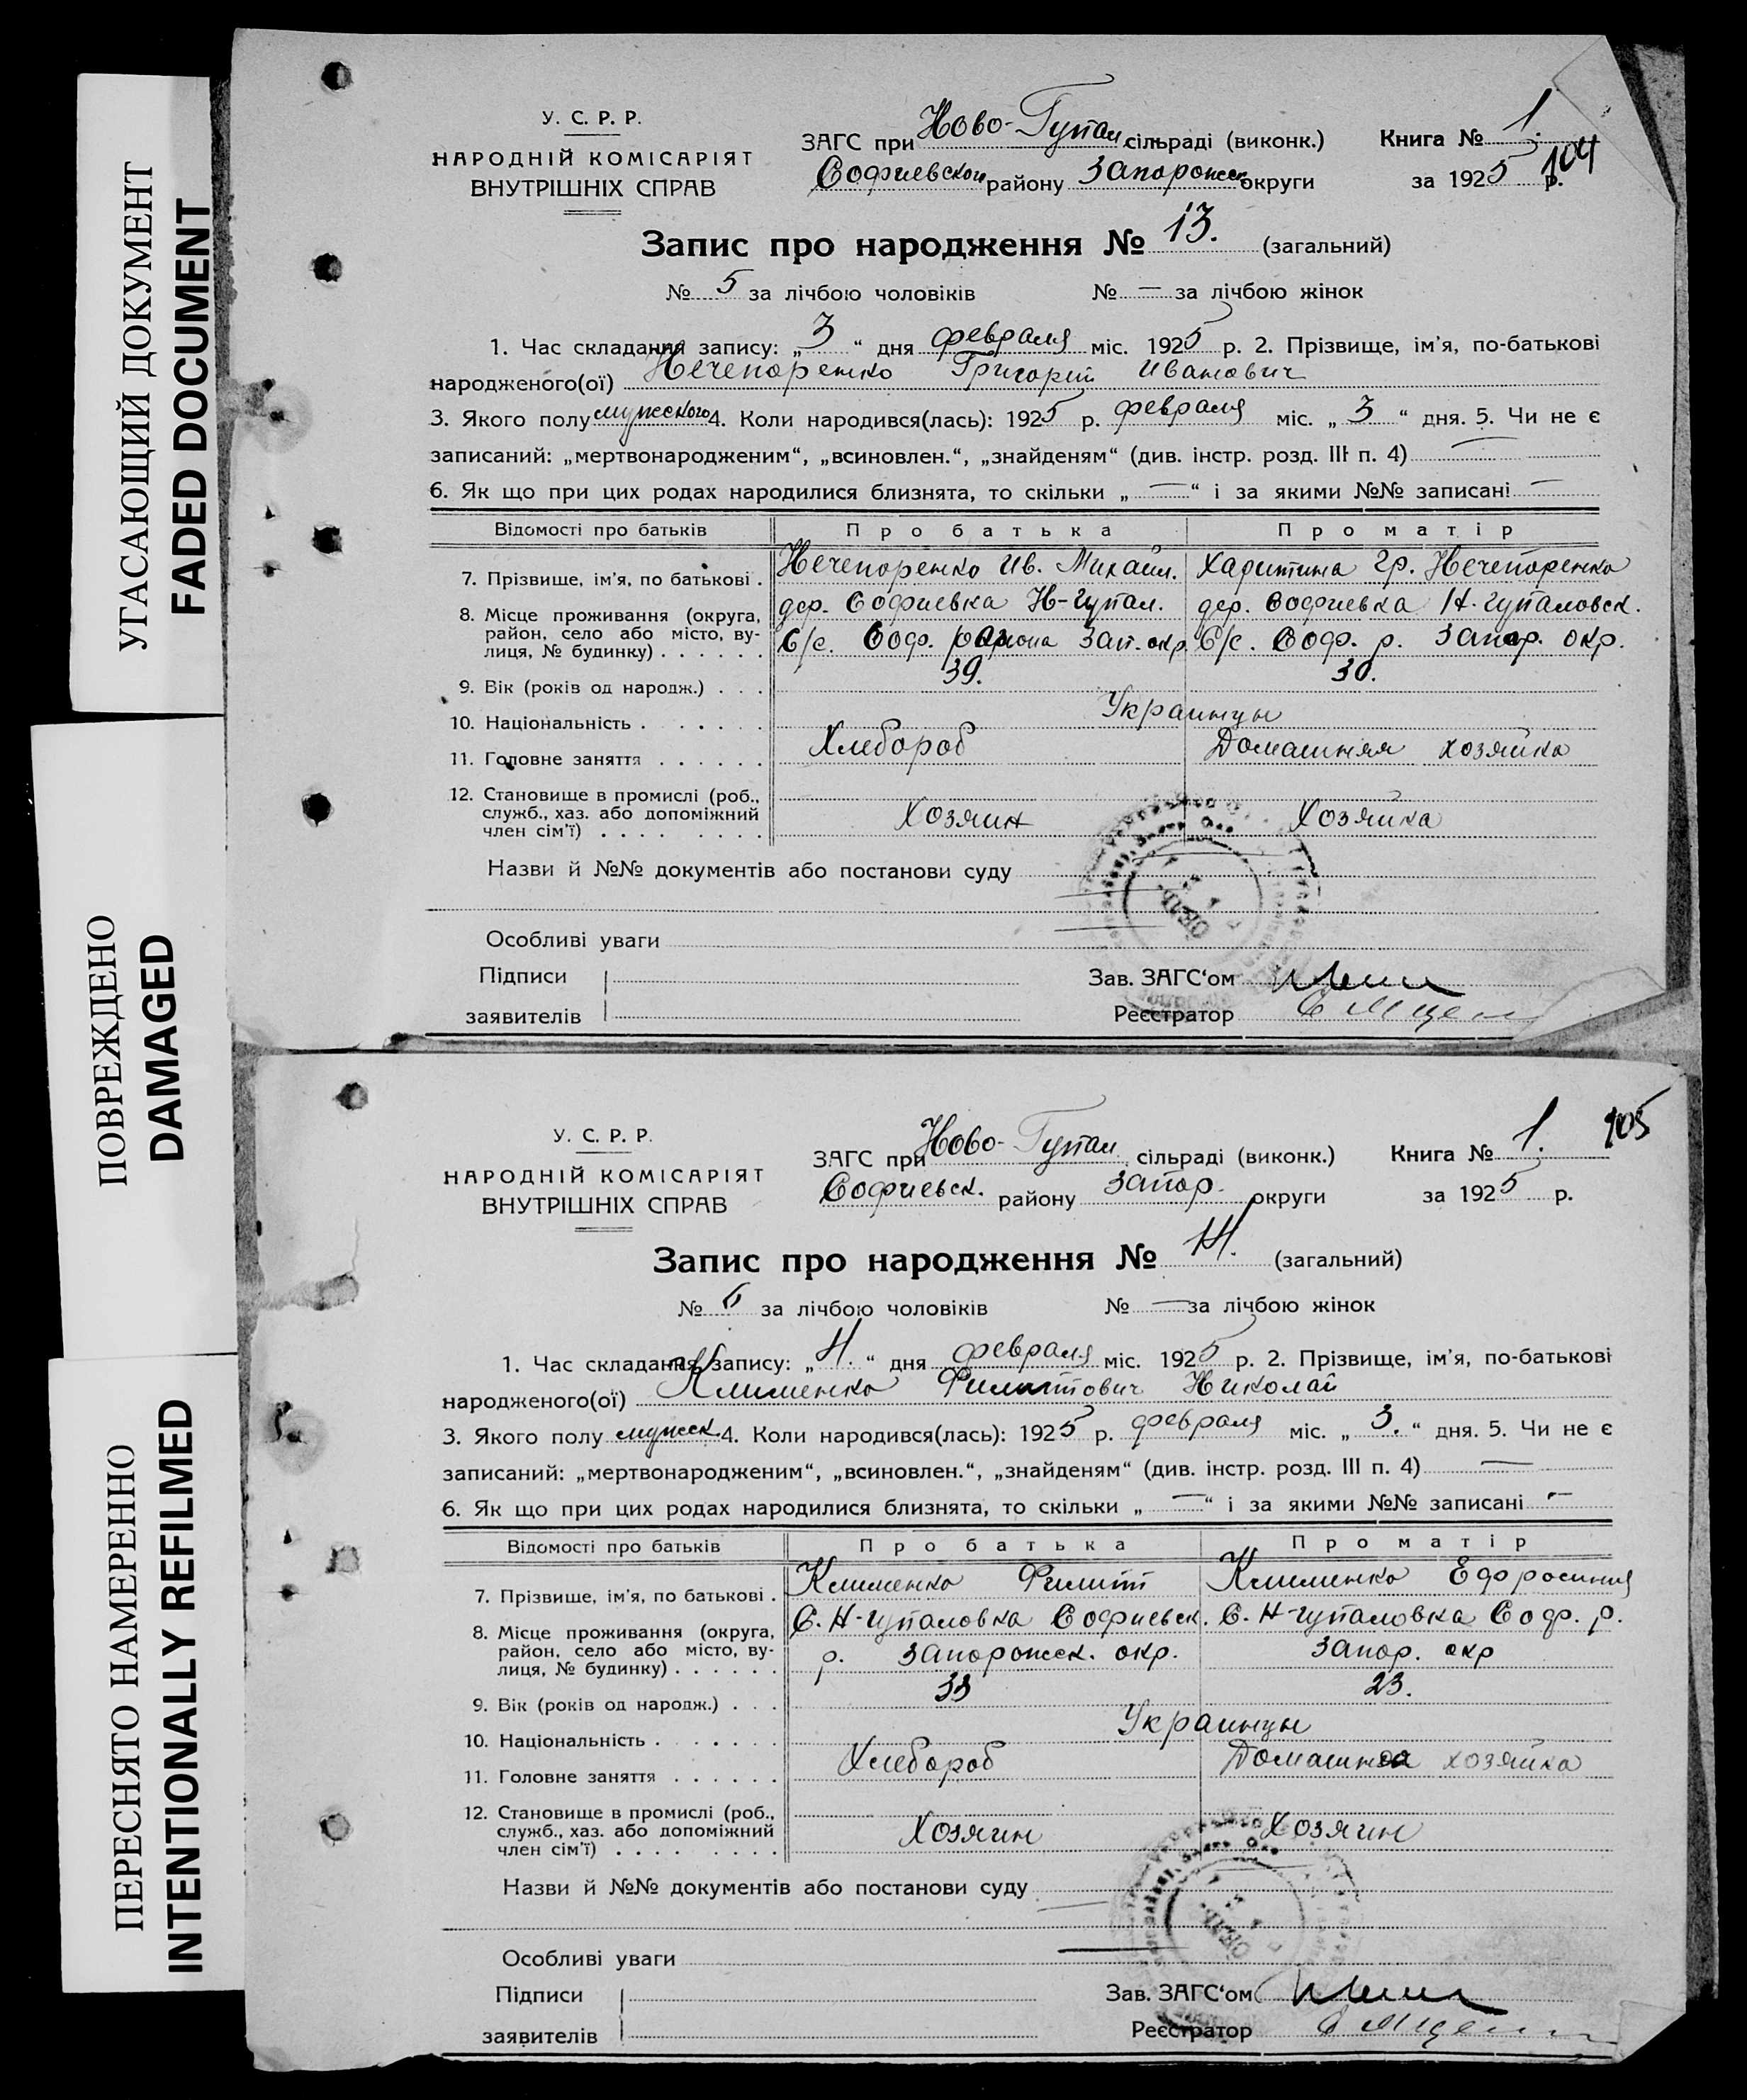 УГАСАЮЩИЙ ДОКУМЕНТ
FADED DOCUMENT
ПОВРЕЖДЕНО
DAMAGED
ПЕРЕСНЯТО НАМЕРЕННО
INTENTIONALLY REFILMED
У. С. Р. Р.
НАРОДНІЙ КОМІСАРІЯТ
ВНУТРІШНІХ СПРАВ
ЗАГС при Ново-Гупал. сільраді (виконк.)
Софиевском району Запорожск округи
Книга № 1.
за 1925 р.
104
Запис про народження № 13. (загальний)
№ 5 за лічбою чоловіків № — за лічбою жінок
1. Час складання запису: „3“ дня февраля міс. 1925 р. 2. Прізвище, ім'я, по-батькові
народженого(ої) Нечепоренко Григорий Иванович
3. Якого полу мужеского 4. Коли народився(лась): 1925 р. февраля міс. „3“ дня. 5. Чи не є
записаний: „мертвонародженим“, „всиновлен.“, „знайденям“ (див. інстр. розд. III п. 4) —
6. Як що при цих родах народилися близнята, то скільки „—“ і за якими №№ записані —
Відомості про батьків Про батька Про матір
7. Прізвище, ім'я, по батькові . Нечепоренко Ив. Михаил. Харитина Гр. Нечепоренко
8. Місце проживання (округа, дер. Софиевка Н-Гупал. дер. Софиевка Н. Гупаловск.
район, село або місто, ву-
лиця, № будинку) . . . . . . С/с. Соф. района Зап. окр. С/с. Соф. р. Запор. окр.
9. Вік (років од народж.) . . . 39. 30.
10. Національність . . . . . . Украинцы
11. Головне заняття . . . . . . Хлебороб Домашняя хозяйка
12. Становище в промислі (роб.,
служб., хаз. або допоміжний Хозяин Хозяйка
член сім'ї) . . . . . . . .
Назви й №№ документів або постанови суду
Особливі уваги
Підписи
заявителів
Зав. ЗАГС'ом
Реєстратор
У. С. Р. Р.
НАРОДНІЙ КОМІСАРІЯТ
ВНУТРІШНІХ СПРАВ
ЗАГС при Ново-Гупал сільраді (виконк.)
Софиевск. району Запор. округи
Книга № 1.
за 1925 р.
105
Запис про народження № 14. (загальний)
№ 6 за лічбою чоловіків № — за лічбою жінок
1. Час складання запису: „4.“ дня февраля міс. 1925 р. 2. Прізвище, ім'я, по-батькові
народженого(ої) Клименко Филиппович Николай
3. Якого полу мужеск 4. Коли народився(лась): 1925 р. февраля міс. „3.“ дня. 5. Чи не є
записаний: „мертвонародженим“, „всиновлен.“, „знайденям“ (див. інстр. розд. III п. 4) —
6. Як що при цих родах народилися близнята, то скільки „—“ і за якими №№ записані —
Відомості про батьків Про батька Про матір
7. Прізвище, ім'я, по батькові . Клименко Филипп Клименко Ефросиния
8. Місце проживання (округа, С. Н-Гупаловка Софиевск. С. Н-Гупаловка Соф. р.
район, село або місто, ву-
лиця, № будинку) . . . . . . р. Запорожск. окр. Запор. окр
9. Вік (років од народж.) . . . 33 23.
10. Національність . . . . . . Украинцы
11. Головне заняття . . . . . . Хлебороб Домашняя хозяйка
12. Становище в промислі (роб.,
служб., хаз. або допоміжний Хозяин Хозяин
член сім'ї) . . . . . . . .
Назви й №№ документів або постанови суду
Особливі уваги
Підписи
заявителів
Зав. ЗАГС'ом
Реєстратор